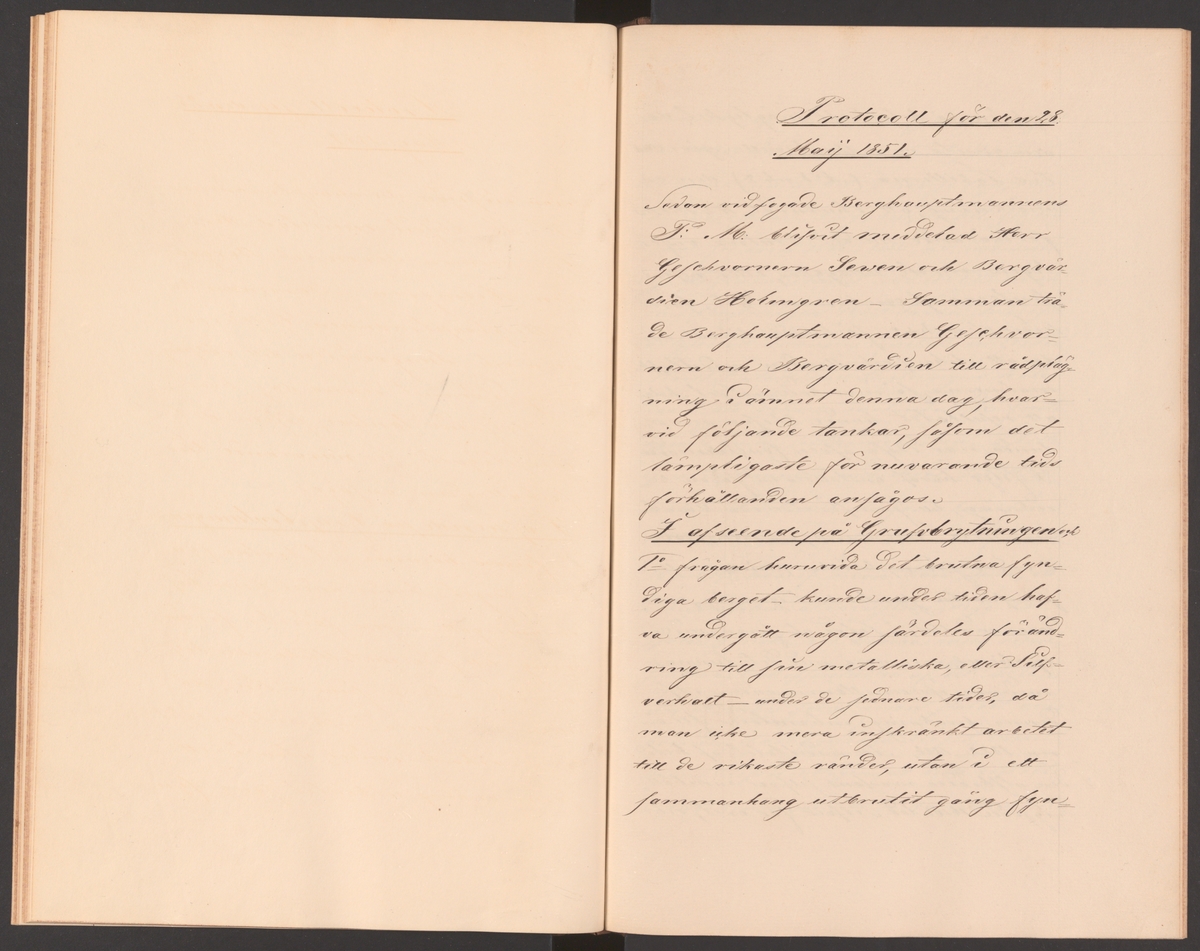 Protocoll för den 28
Maÿ 1851.
Sedan vidfogade Berghauptmannens
P: M: blifvit meddelad Herr
Geschvornern Sewen och Bergvär-
dien Holmgren – Samman trä-
de Berghauptmannen Geschvor-
nern och Bergvärdien till rådpläg-
ning i ämnet denna dag, hvar-
vid följande tankar, såsom det
lämpligaste för nuvarande tids
förhållanden ansågos.
I afseende på Grufvbrytningen och
1o frågan huruvida det brutna fyn-
diga berget – kunde under tiden haf-
va undergått någon särdeles föränd-
ring till sin metalliska, eller Silf-
verhalt – under de sednare tider, då
man icke mera inskränkt arbetet
till de rikaste ränder, utan i ett
sammanhang utbrutit gång fyn-